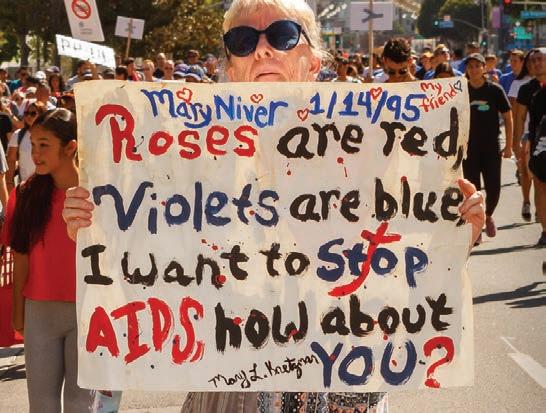 Mary Niver 1/14/95 my friend
Roses are red,
Violets are blue
I want to Stop
AIDS how about
YOU?
Mary L. Kretzmar